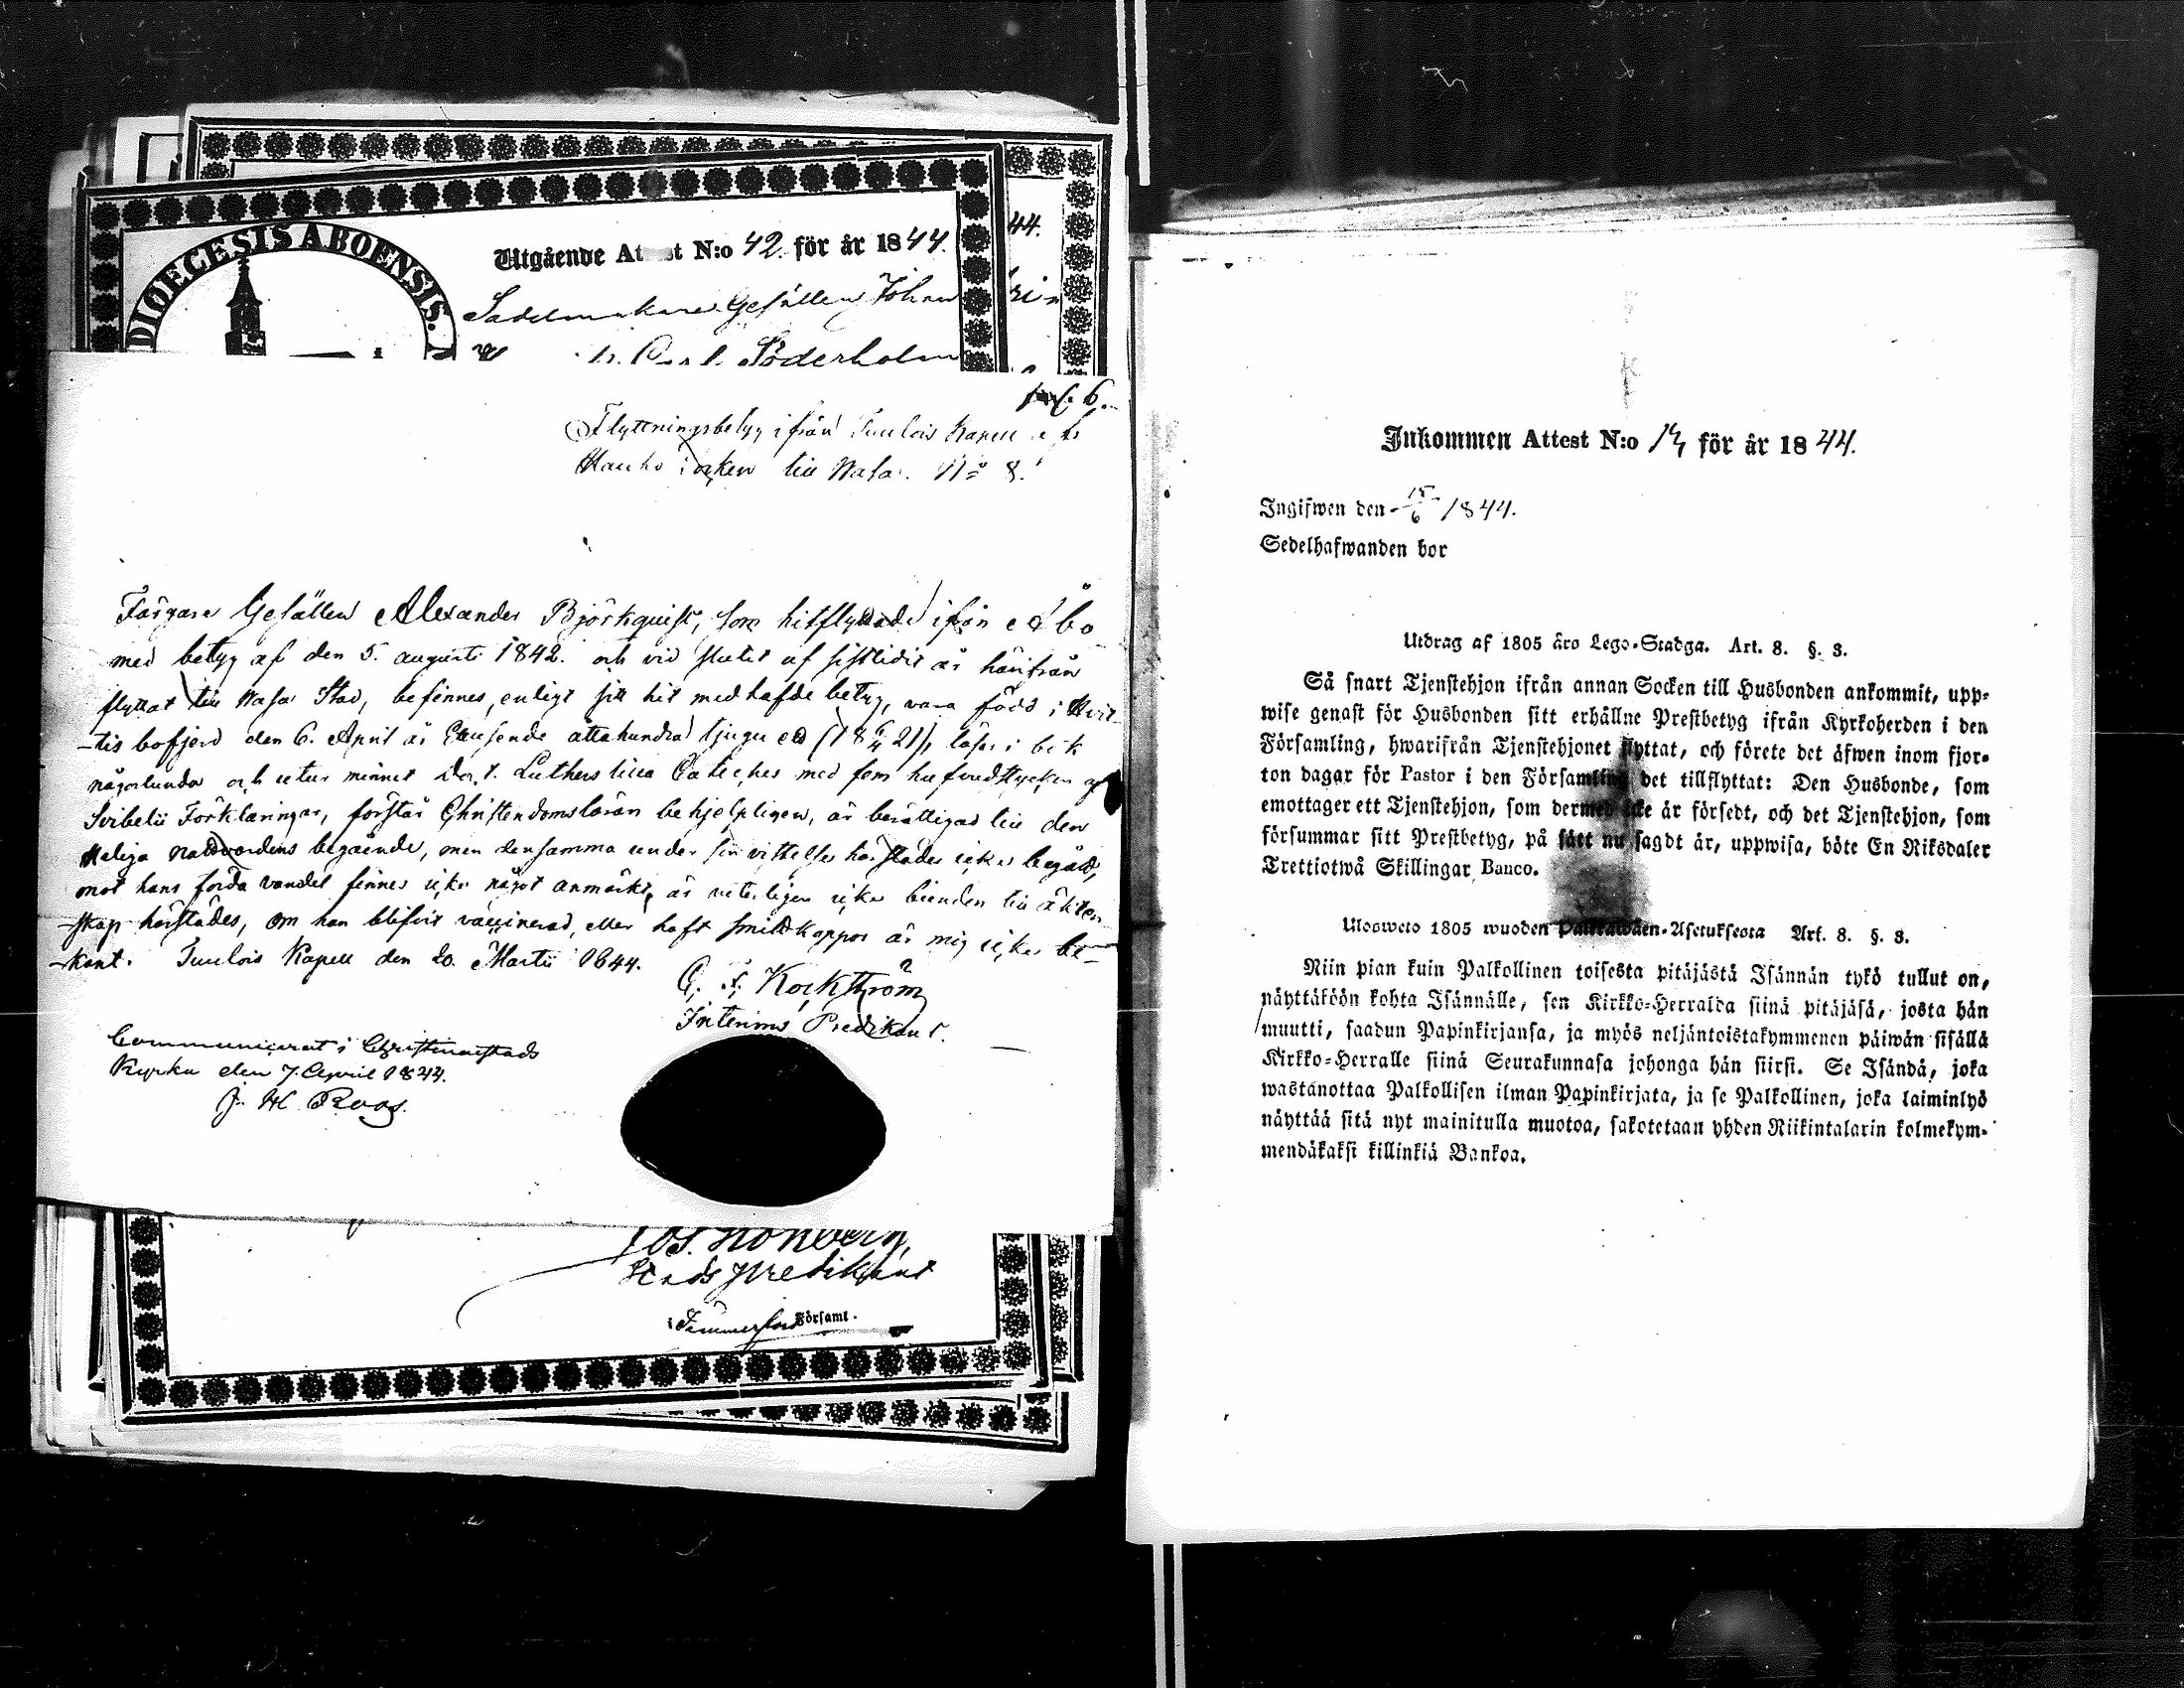 44.
DIOECESIS ABOENSIS.
Utgående At st N:o 42. för år 1844.
Sadelmakare Gesällen Johan
Söderholm
6.
Flyttningsbetyg ifrån Tuulois Kapell
Hauho Socken till Wasa. N:o 8.
Färgare Gesällen Alexander Björkquist, som hitflyttade ifrån Åbo
med betyg af den 5. augusti 1842. och vid slutet af sistlidit år härifrån
flyttat till Wasa Stad, befinnes, enligt sitt hit medhafde betyg, vara född i Hvit-
-tis bofjerd den 6. April år Ettusende åttahundrad tjugu ett (18 6/4 21), läser i bok
någorlunda och utur minnet Doct. Luthers lilla Cateches med fem hufvudstycken af
Svibelii Förklaringar, förstår Christendomsläran behjelpligen, är berättigad till den
Heliga nattvardens begående, men densamma under sin vistelse härstädes icke begått,
mot hans förda vandel finnes icke något anmärkt, är veterligen icke bunden till äkten-
-skap härstädes, om han blifvit vaccinerad, eller haft smittkoppor är mig icke be-
-kant. Tuulois Kapell den 20. Martii 1844.
Kockström
Interims Predikant.
Communicerat i Christinæstads
Kyrka den 7. April 1844.
J. H. Roos.
Stads Predikant
Tammerfors Församl.
Inkommen Attest N:o 14 för år 1844.
Ingifwen den 15/6 1844.
Sedelhafwanden bor
Utdrag af 1805 års Lego-Stadga. Art. 8. §. 3.
Så snart Tjenstehjon ifrån annan Socken till Husbonden ankommit, upp-
wise genast för Husbonden sitt erhållne Prestbetyg ifrån Kyrkoherden i den
Församling, hwarifrån Tjenstehjonet flyttat, och förete det äfwen inom fjor-
ton dagar för Pastor i den Församling det tillflyttat: Den Husbonde, som
emottager ett Tjenstehjon, som dermed icke är försedt, och det Tjenstehjon, som
försummar sitt Prestbetyg, på sätt nu sagdt är, uppwisa, böte En Riksdaler
Trettiotwå Skillingar Banco.
Ulosweto 1805 wuoden Palkkawäen-Asetuksesta Art. 8. §. 3.
Niin pian kuin Palkollinen toisesta pitäjästä Isännän tykö tullut on,
näyttäköön kohta Isännälle, sen Kirkko-Herralda siinä pitäjäsä, josta hän
muutti, saadun Papinkirjansa, ja myös neljäntoistakymmenen päiwän sisällä
Kirkko-Herralle siinä Seurakunnasa johonga hän siirsi. Se Isändä, joka
wastanottaa Palkollisen ilman Papinkirjata, ja se Palkollinen, joka laiminlyö
näyttää sitä nyt mainitulla muotoa, sakotetaan yhden Riikintalarin kolmekym-
mendäkaksi killinkiä Bankoa.